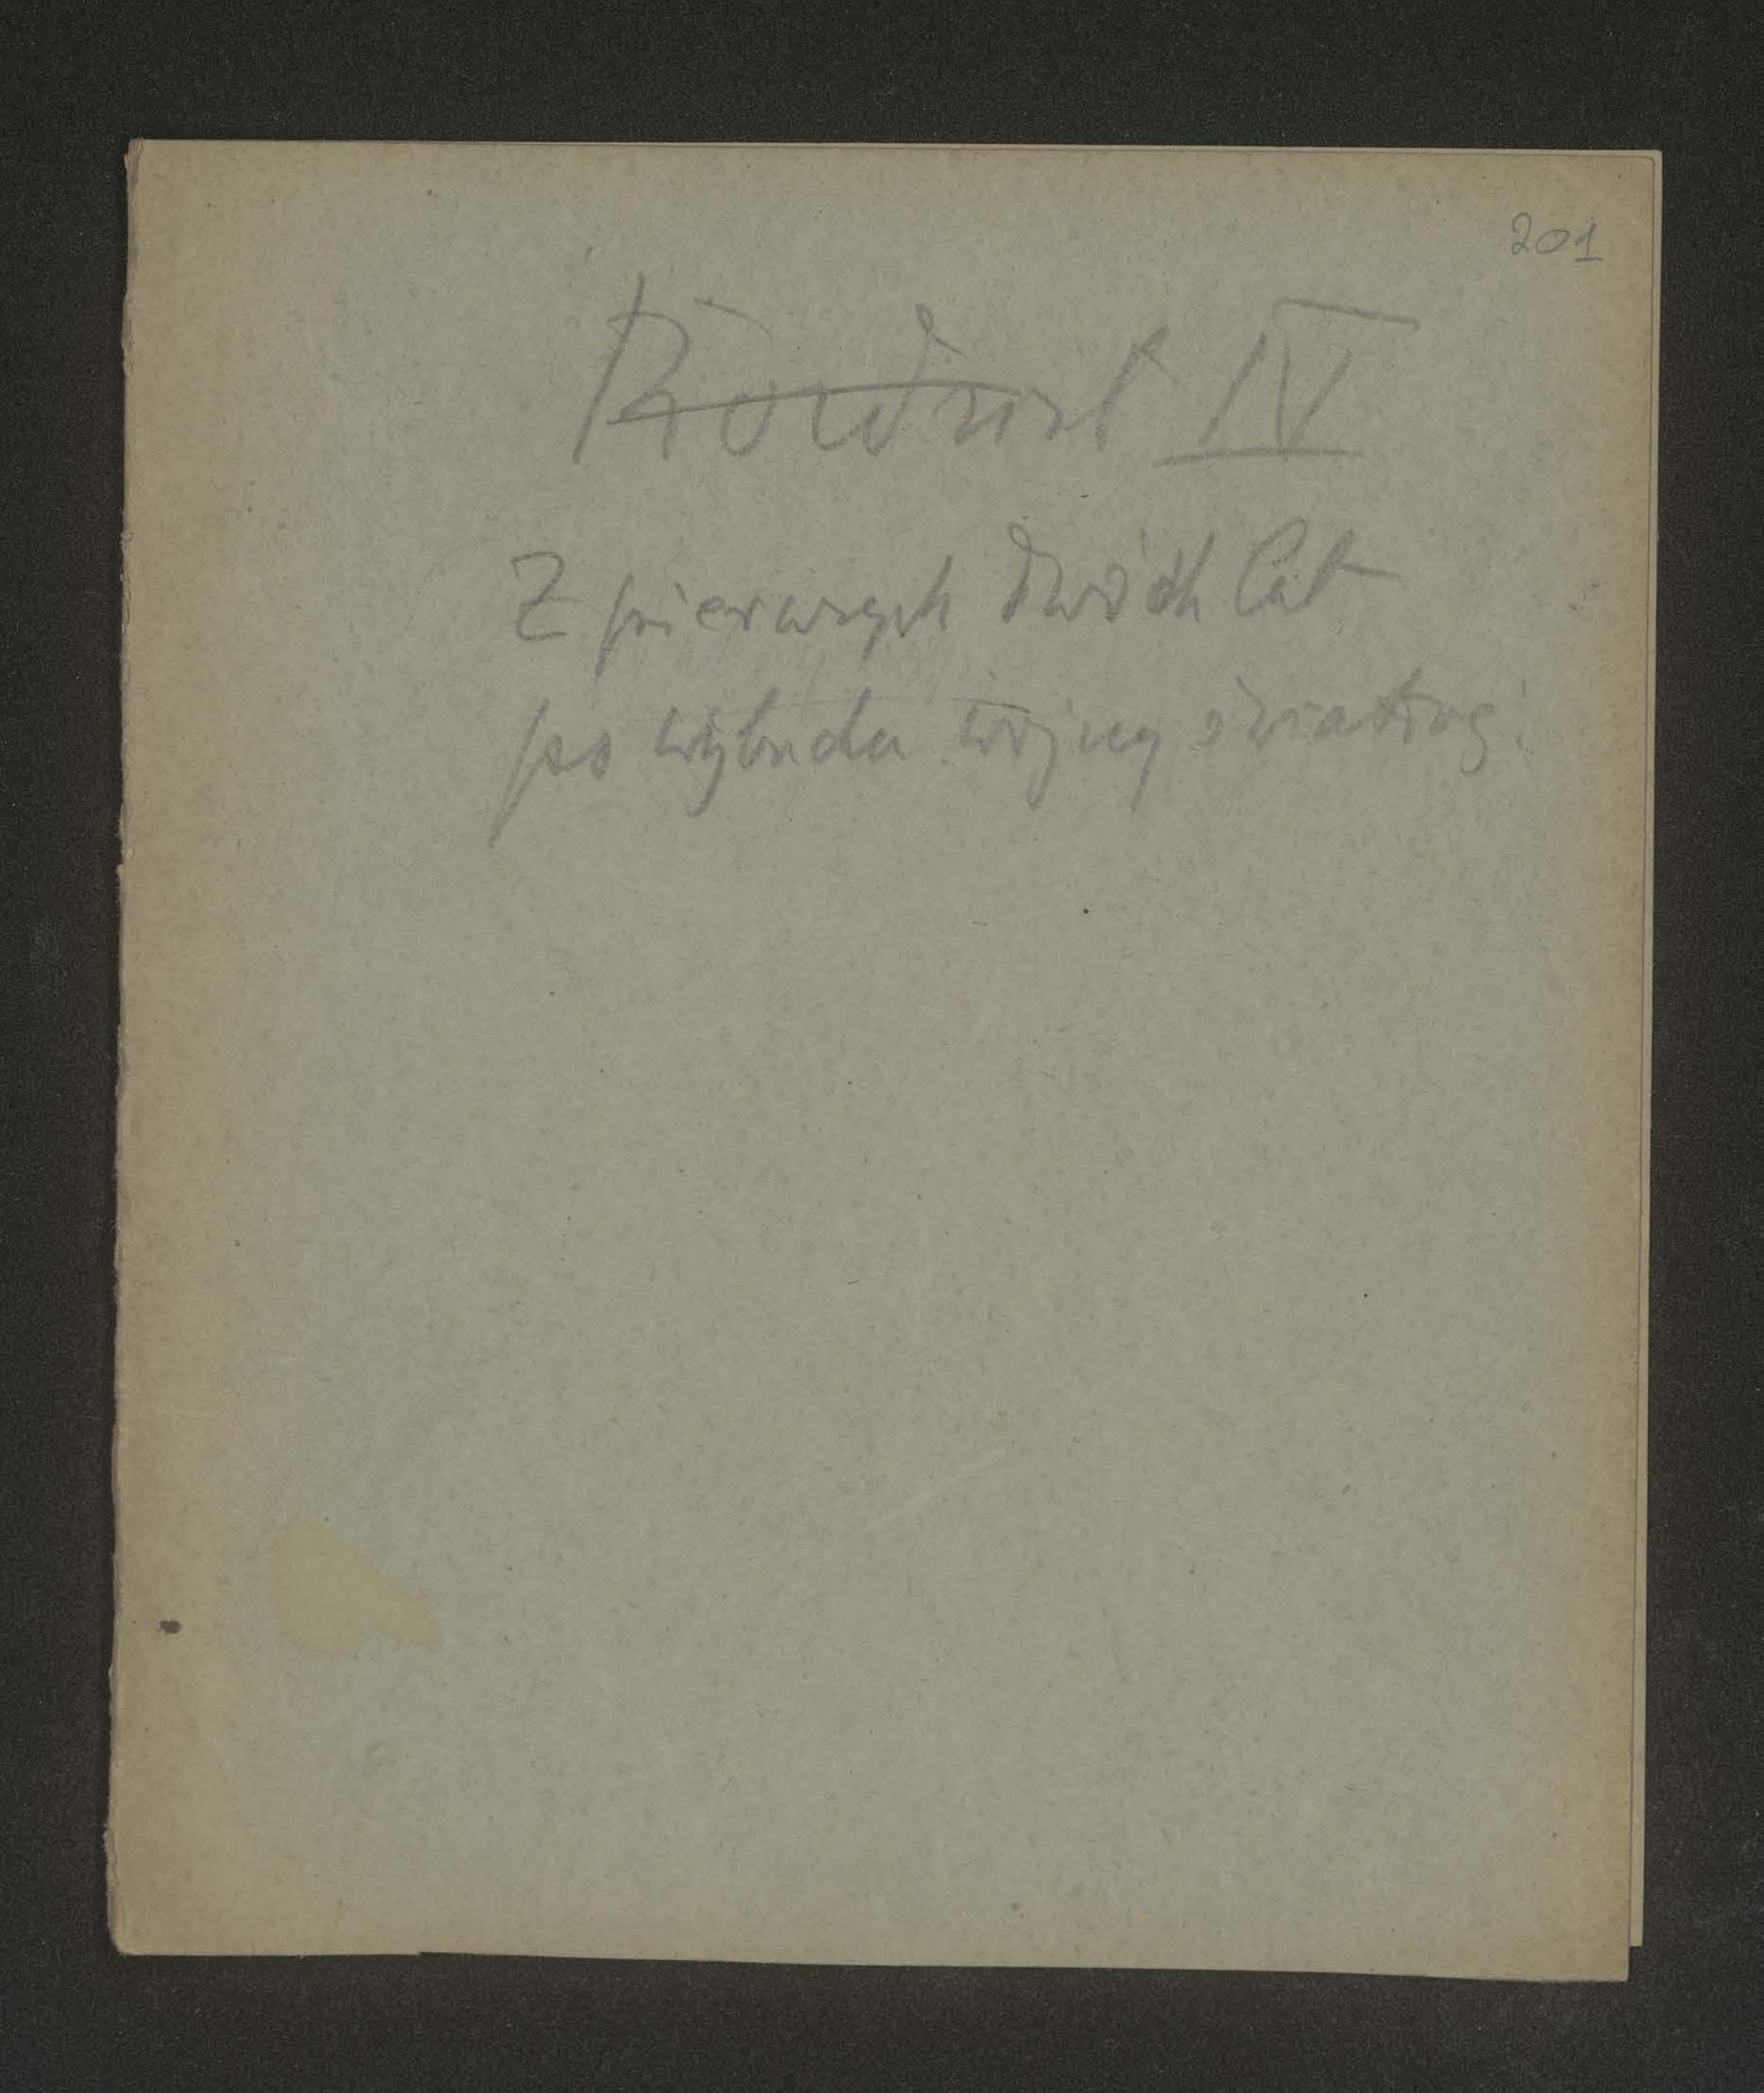 201
Rozdział IV
Z pierwszych dwóch lat
po wybuchu wojny światowej